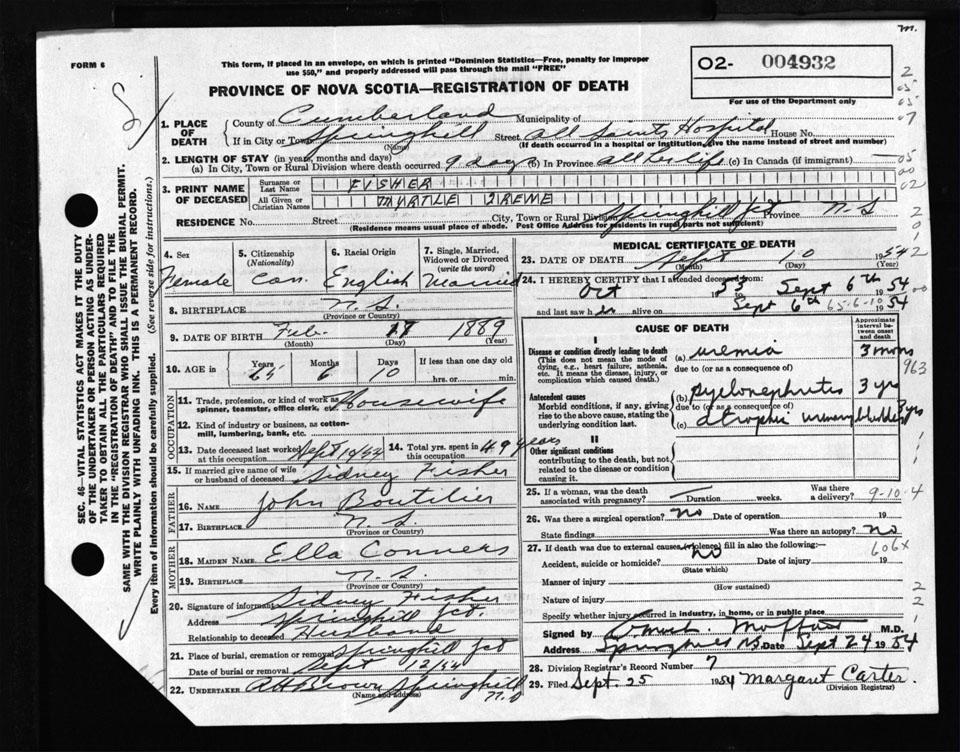 m.
FORM 6
This form, if placed in an envelope, on which is printed "Dominion Statistics—Free, penalty for improper
use $50," and properly addressed will pass through the mail "FREE"
O2- 004932
For use of the Department only
PROVINCE OF NOVA SCOTIA—REGISTRATION OF DEATH
1. PLACE OF DEATH
County of Cumberland Municipality of
If in City or Town Springhill Street All Saints Hospital House No.
(Name) (If death occurred in a hospital or institution, give the name instead of street and number)
2. LENGTH OF STAY (in years, months and days)
(a) In City, Town or Rural Division where death occurred 9 days (b) In Province all her life (c) In Canada (if immigrant) —
3. PRINT NAME OF DECEASED
Surname or Last Name FISHER
All Given or Christian Names MYRTLE IRENE
RESIDENCE No. Street City, Town or Rural Division Springhill Jct Province N-S
(Residence means usual place of abode. Post Office Address for residents in rural parts not sufficient)
4. Sex Female
5. Citizenship (Nationality) Can.
6. Racial Origin English
7. Single, Married, Widowed or Divorced (write the word) Married
8. BIRTHPLACE N.S.
(Province or Country)
9. DATE OF BIRTH Feb. 1889
(Month) (Day) (Year)
10. AGE in Years 65 Months 6 Days 10 If less than one day old
hrs. or min.
OCCUPATION
11. Trade, profession, or kind of work as spinner, teamster, office clerk, etc. Housewife
12. Kind of industry or business, as cotton-mill, lumbering, bank, etc.
13. Date deceased last worked at this occupation Sept
14. Total yrs. spent in this occupation 49 years
15. If married give name of wife or husband of deceased Sidney Fisher
FATHER
16. NAME John Boutilier
17. BIRTHPLACE N.S.
(Province or Country)
MOTHER
18. MAIDEN NAME Ella Conners
19. BIRTHPLACE N.S.
(Province or Country)
20. Signature of informant Sidney Fisher
Address Springhill Jct.
Relationship to deceased Husband
21. Place of burial, cremation or removal Springhill Jct
Date of burial or removal Sept 12/54
22. UNDERTAKER A H Brown Springhill N.S
(Name and address)
MEDICAL CERTIFICATE OF DEATH
23. DATE OF DEATH Sept 10 1954
(Month) (Day) (Year)
24. I HEREBY CERTIFY that I attended deceased from:
Oct 1953 Sept 6th 1954
and last saw h er alive on Sept 6th 1954
65-6-10
CAUSE OF DEATH
Approximate interval between onset and death
I
Disease or condition directly leading to death
(This does not mean the mode of dying, e.g., heart failure, asthenia, etc. It means the disease, injury, or complication which caused death.)
(a) uremia 3 mons
due to (or as a consequence of)
Antecedent causes
Morbid conditions, if any, giving rise to the above cause, stating the underlying condition last.
(b) pyelonephritis 3 yrs
due to (or as a consequence of)
(c) atrophic urinary bladder yrs
II
Other significant conditions
contributing to the death, but not related to the disease or condition causing it.
25. If a woman, was the death associated with pregnancy? Duration weeks. Was there a delivery?
9-10-4
26. Was there a surgical operation? no Date of operation 19
State findings Was there an autopsy? no
27. If death was due to external causes (violence) fill in also the following:—
606X
Accident, suicide or homicide? no Date of injury 19
(State which)
Manner of injury
(How sustained)
Nature of injury
Specify whether injury occurred in industry, in home, or in public place
Signed by Moffatt M.D.
Address Springhill N.S. Date Sept 24 1954
28. Division Registrar's Record Number 7
29. Filed Sept. 25 1954 Margaret Carter.
(Division Registrar)
SEC. 46—VITAL STATISTICS ACT MAKES IT THE DUTY
OF THE UNDERTAKER OR PERSON ACTING AS UNDER-
TAKER TO OBTAIN ALL THE PARTICULARS REQUIRED
IN THE "REGISTRATION OF DEATH" AND TO FILE THE
SAME WITH THE DIVISION REGISTRAR WHO SHALL ISSUE THE BURIAL PERMIT.
WRITE PLAINLY WITH UNFADING INK. THIS IS A PERMANENT RECORD.
Every item of information should be carefully supplied. (See reverse side for instructions.)